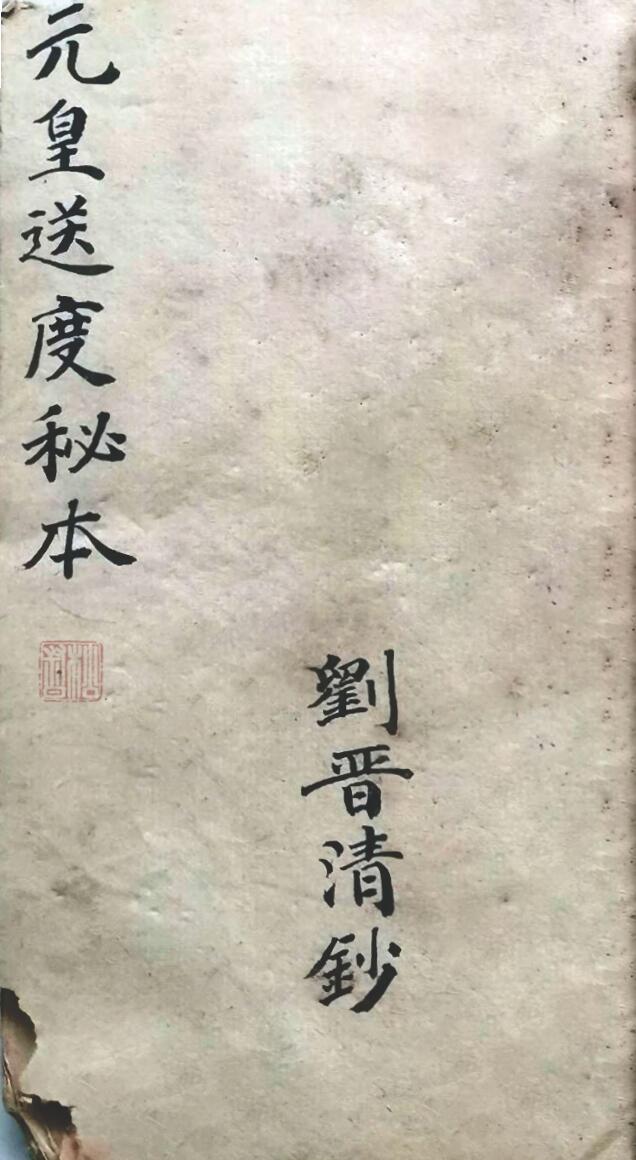 元皇送度秘本
劉晋清鈔